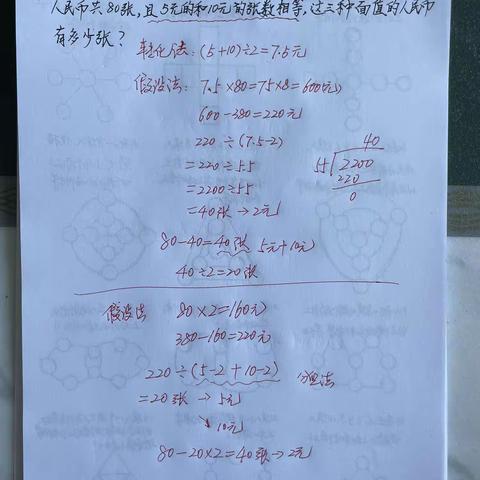 人民币共80张,且5元的和10元的张数相等,这三种面值的人民币
有多少张?
转化法:(5+10)÷2=7.5元
假设法: 7.5×80=75×8=600(元)
600-380=220元
220÷(7.5-2)
=220÷5.5
=2200÷55
=40张→2元
40
55 2200
220
0
80-40=40张 5元+10元
40÷2=20张
假设法 80×2=160(元)
380-160=220元
220÷(5-2+10-2) 分组法
=20张→5元
↘10元
80-20×2=40张→2元